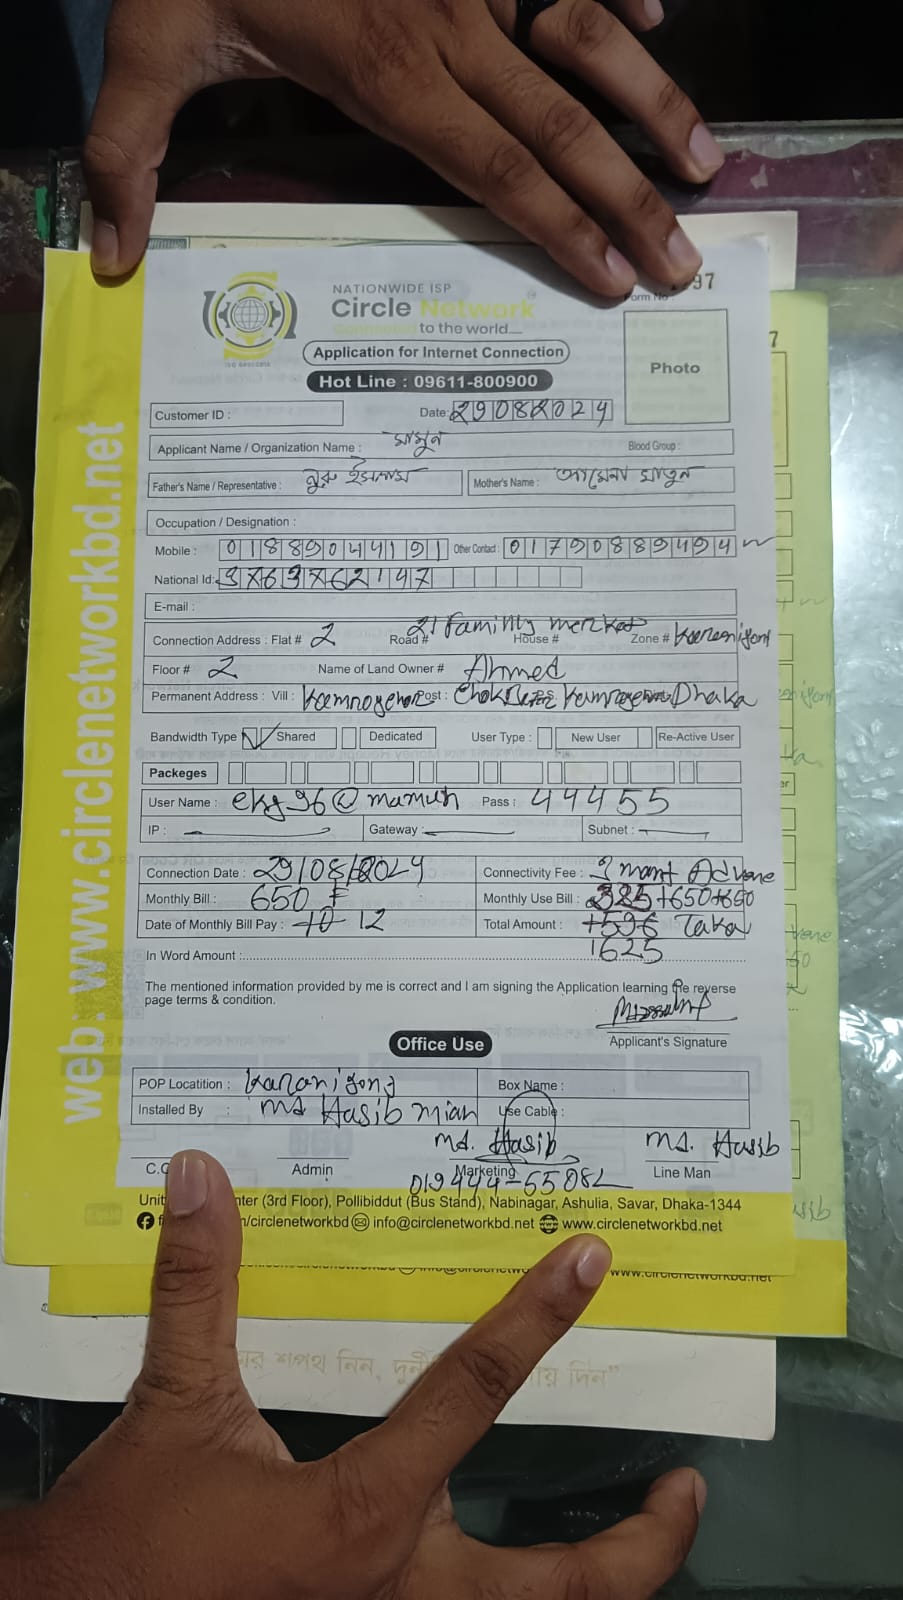 97
Form No :
NATIONWIDE ISP
Circle Network
Connected to the world
Application for Internet Connection
Hot Line : 09611-800900
Photo
Customer ID :
Date: 29082024
Applicant Name / Organization Name : মামুন Blood Group :
Father's Name / Representative : নুরু ইসলাম Mother's Name : আমেনা খাতুন
Occupation / Designation :
Mobile : 01889044191 Other Contact : 01790889494
National Id: 3763762147
E-mail :
Connection Address : Flat # 2 Road # 21 Family House # Zone #
Floor # 2 Name of Land Owner # Ahmed
Permanent Address : Vill : Post : Dhaka
Bandwidth Type Shared Dedicated User Type : New User Re-Active User
Packeges
User Name : Pass : 44455
IP : Gateway : Subnet :
Connection Date : 29/08/2024 Connectivity Fee :
Monthly Bill : 650 Monthly Use Bill : +650+650
Date of Monthly Bill Pay : 10 12 Total Amount : Taka
1625
In Word Amount :
The mentioned information provided by me is correct and I am signing the Application learning the reverse
page terms & condition.
Applicant's Signature
Office Use
POP Locatition : Karanigong Box Name :
Installed By : Md Hasib mian Use Cable :
Md. Hasib Md. Hasib
Admin Marketing Line Man
(3rd Floor), Pollibiddut (Bus Stand), Nabinagar, Ashulia, Savar, Dhaka-1344
/circlenetworkbd info@circlenetworkbd.net www.circlenetworkbd.net
web: www.circlenetworkbd.net
www.circlenetworkbd.net
শপথ নিন,
দিন"